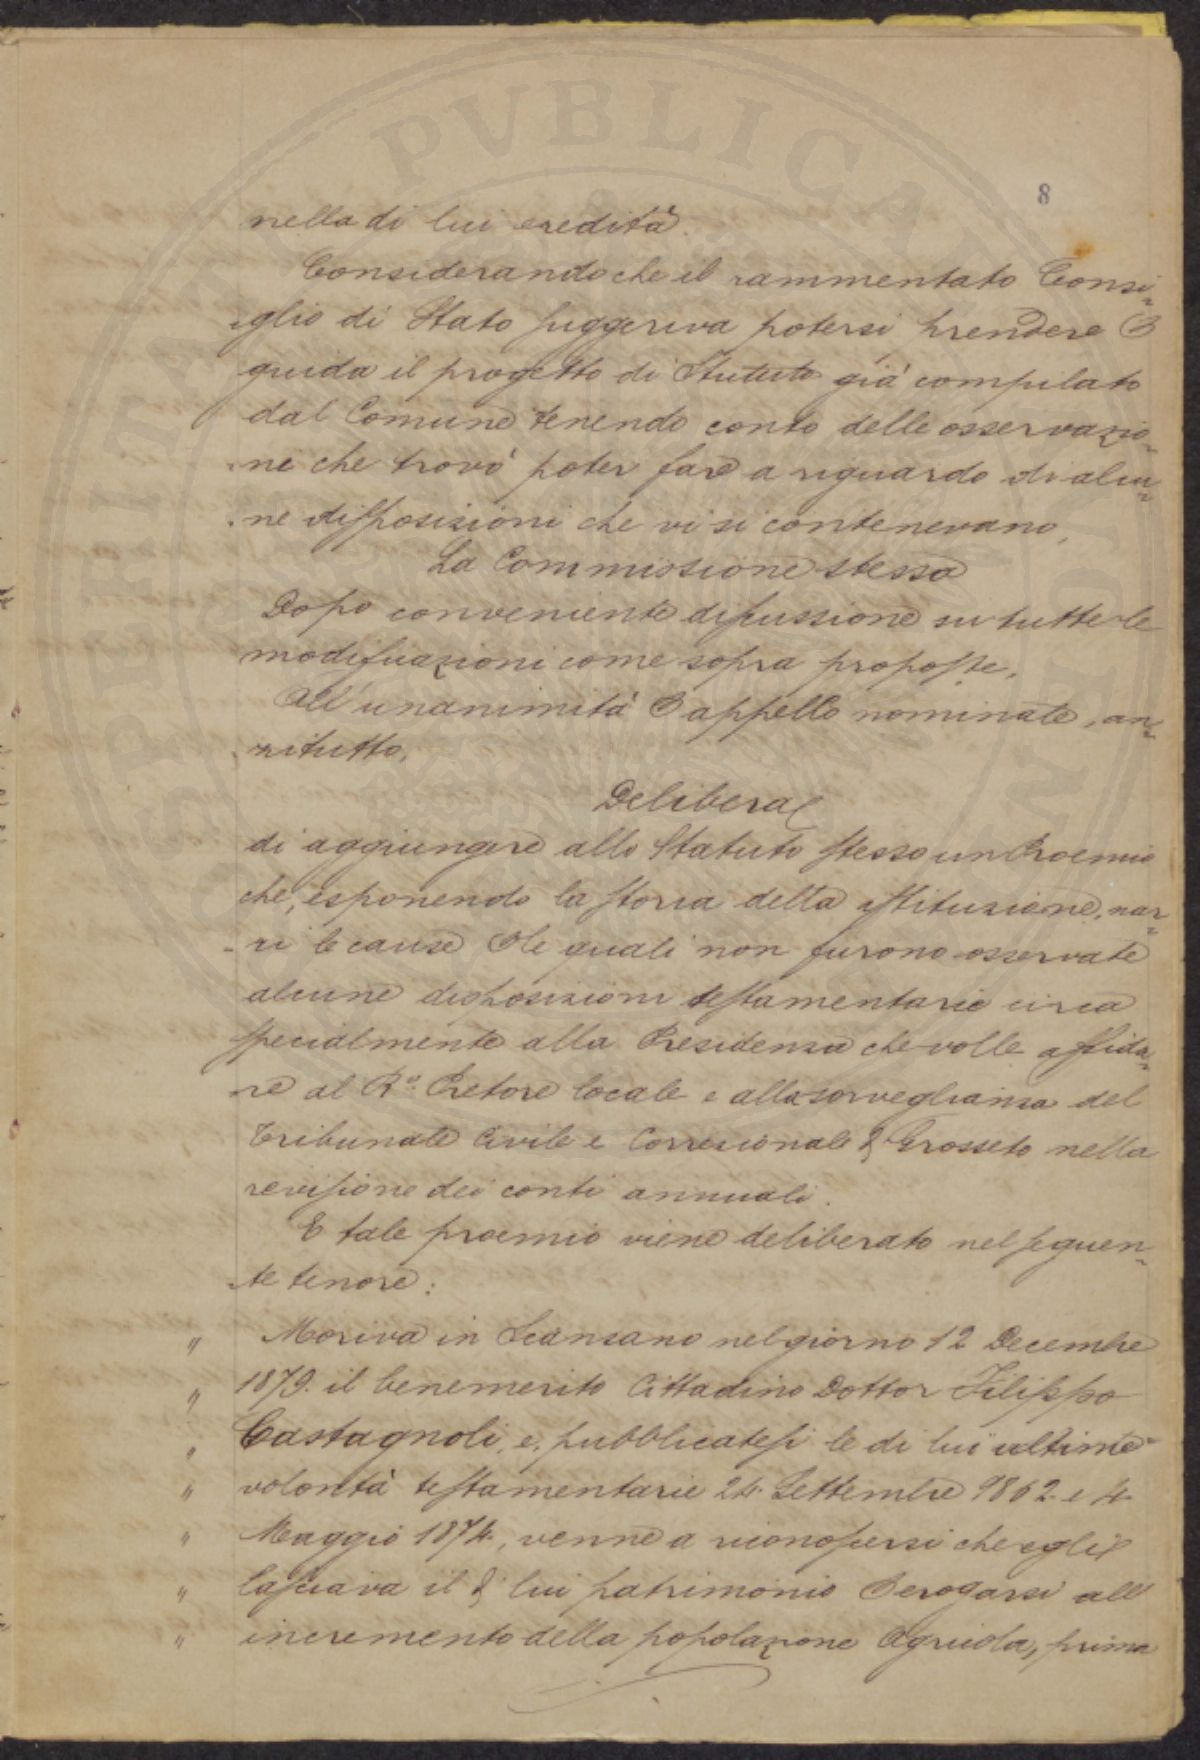 8
nella di lui eredità.
Considerando che il rammentato Consi-
-glio di Stato suggeriva potersi prendere a
guida il progetto di Statuto già compilato
dal Comune tenendo conto delle osservazio-
-ne che trovò poter fare a riguardo di alcu-
-ne disposizioni che vi si contenevano,
La Commissione stessa
Dopo conveniente discussione su tutte le
modificazioni come sopra proposte,
All'unanimità appello nominale, an-
zitutto,
Delibera
di aggiungere allo Statuto stesso un Proemio
che, esponendo la storia della istituzione, nar-
-ri le cause le quali non furono osservate
alcune disposizioni testamentarie circa
specialmente alla Presidenza che volle affida-
-re al Ro. Pretore locale e alla sorveglianza del
Tribunale Civile e Correzionale di Grosseto nella
revisione dei conti annuali.
E tale proemio viene deliberato nel seguen-
-te tenore:
" Moriva in Scansano nel giorno 12 Decembre
" 1879. il benemerito Cittadino Dottor Filippo
" Castagnoli, e, pubblicatesi le di lui ultime
" volontà testamentarie 24. Settembre 1862. e 4
" Maggio 1874., venne a riconoscersi che egli
" lasciava il di lui patrimonio erogarsi all
" incremento della popolazione Agricola, prima
PVBLICA